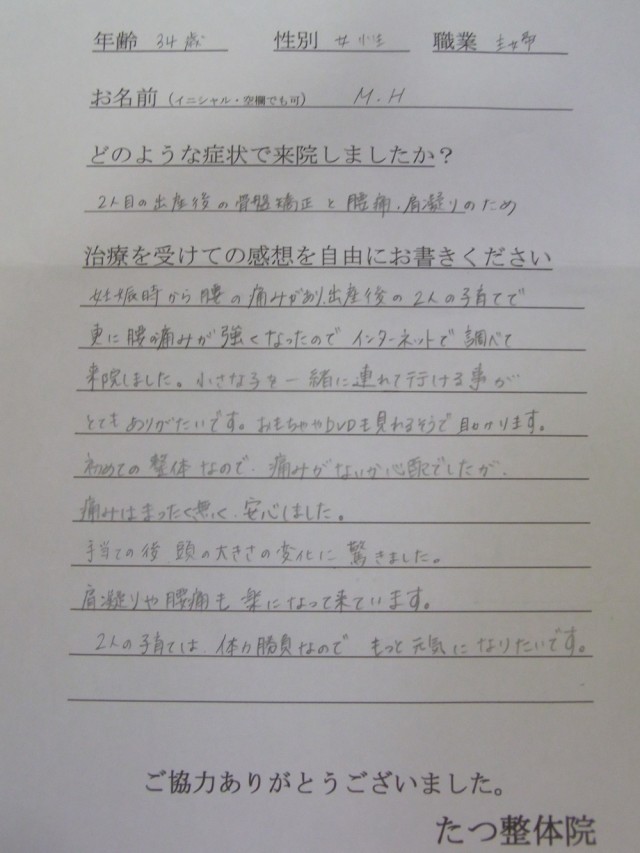 年齢 34歳 性別 女性 職業 主婦
お名前（イニシャル・空欄でも可） M.H
どのような症状で来院しましたか？
2人目の出産後の骨盤矯正と腰痛、肩凝りのため
治療を受けての感想を自由にお書きください
妊娠時から腰の痛みがあり、出産後の2人の子育てで
更に腰の痛みが強くなったのでインターネットで調べて
来院しました。小さな子を一緒に連れて行ける事が
とてもありがたいです。おもちゃやDVDも見れるそうで助かります。
初めての整体なので、痛みがないか心配でしたが、
痛みはまったく無く、安心しました。
手当ての後、頭の大きさの変化に驚きました。
肩凝りや腰痛も楽になって来ています。
2人の子育ては、体力勝負なのでもっと元気になりたいです。
ご協力ありがとうございました。
たつ整体院